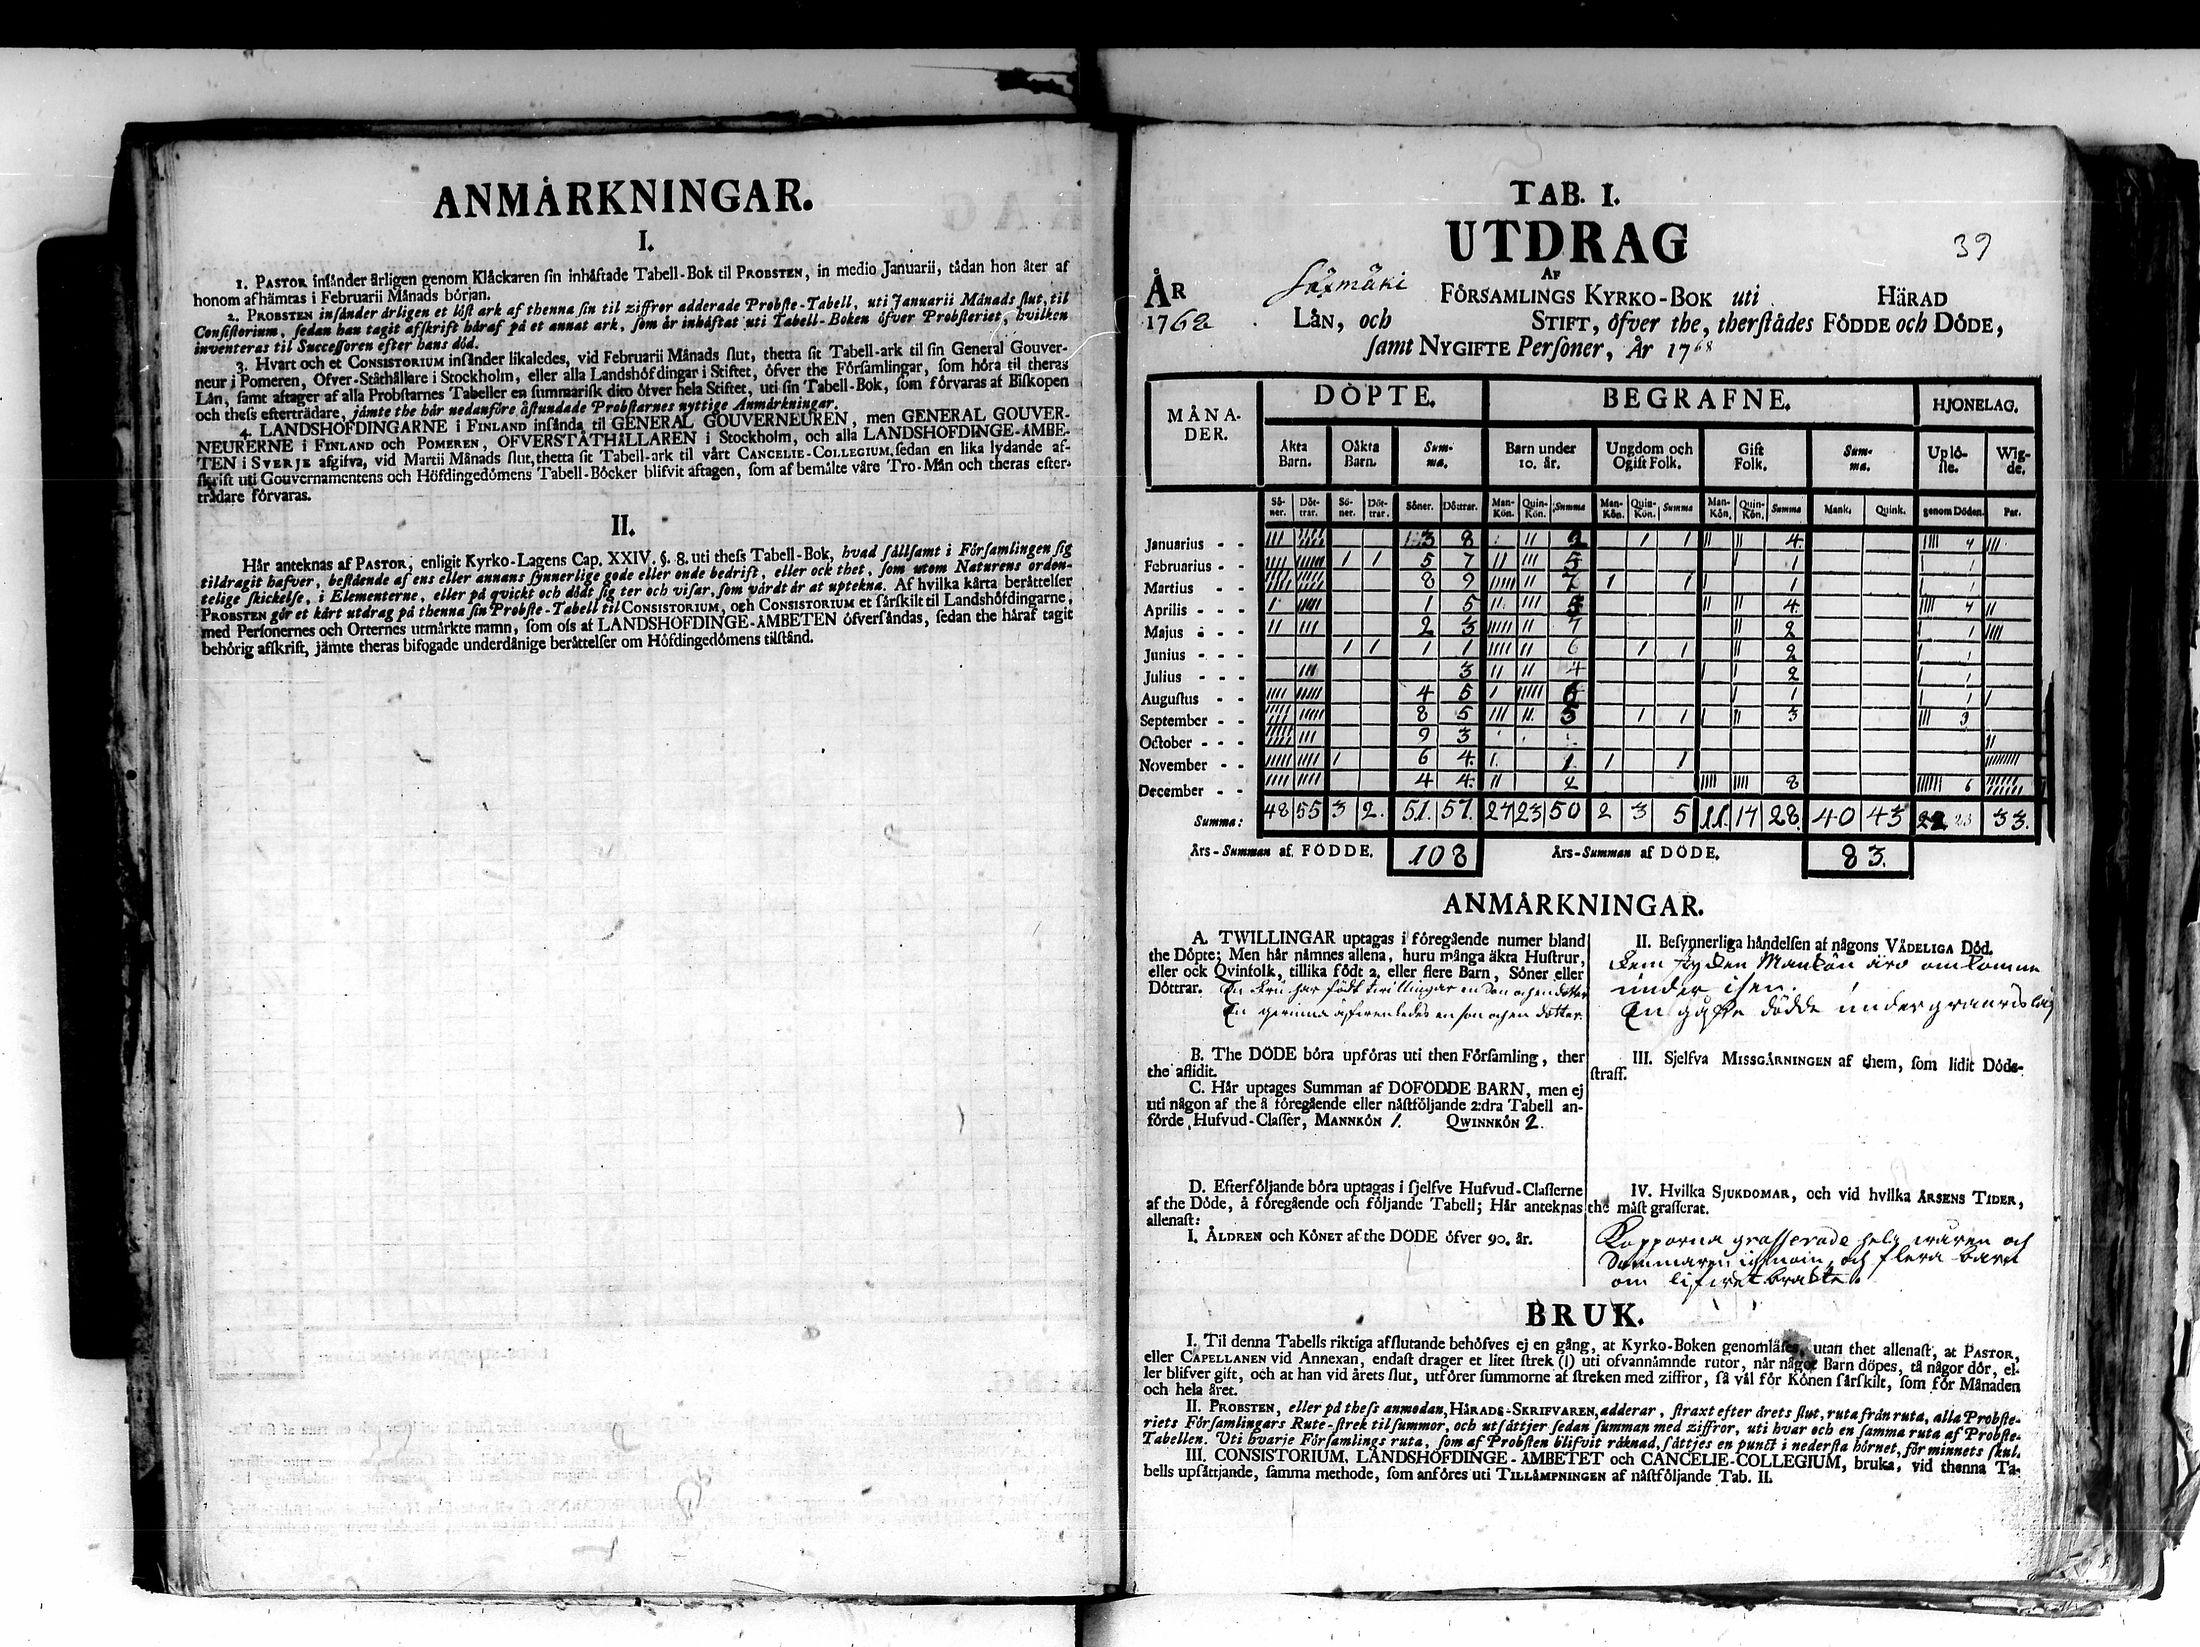 ANMÄRKNINGAR.
I.
1. PASTOR insänder ärligen genom Klåckaren sin inhäftade Tabell-Bok til PROBSTEN, in medio Januarii, tädan hon åter af
honom afhämtas i Februarii Månads början.
2. PROBSTEN insänder årligen et löst ark af thenna sin til ziffror adderade Probste-Tabell, uti Januarii Månads slut, til
Consistorium, sedan han tagit afskrift häraf på et annat ark, som är inhäftat uti Tabell-Boken öfver Probsteriet, hvilken
inventeras til Successoren efter hans död.
3. Hvart och et CONSISTORIUM insänder likaledes, vid Februarii Månads slut, thetta sit Tabell-ark til sin General Gouver-
neur i Pomeren, Öfver-Ståthållare i Stockholm, eller alla Landshöfdingar i Stiftet, öfver the Församlingar, som höra til theras
Län, samt aftager af alla Probstarnes Tabeller en summarisk dito öfver hela Stiftet, uti sin Tabell-Bok, som förvaras af Biskopen
och thess efterträdare, jämte the här nedanföre åstundade Probstarnes nyttige Anmärkningar.
4. LANDSHÖFDINGARNE i FINLAND insända til GENERAL GOUVERNEUREN, men GENERAL GOUVER-
NEURERNE i FINLAND och POMEREN, ÖFVERSTÅTHÅLLAREN i Stockholm, och alla LANDSHÖFDINGE-ÄMBE-
TEN i SVERJE afgifva, vid Martii Månads slut, thetta sit Tabell-ark til vårt CANCELIE-COLLEGIUM, sedan en lika lydande af-
skrift uti Gouvernamentens och Höfdingedömens Tabell-Böcker blifvit aftagen, som af bemälte våre Tro-Män och theras efter-
trädare förvaras.
II.
Här anteknas af PASTOR, enligit Kyrko-Lagens Cap. XXIV. §. 8. uti thess Tabell-Bok, hvad sällsamt i Församlingen sig
tildragit hafver, bestående af ens eller annans synnerlige gode eller onde bedrift, eller ock thet, som utom Naturens orden-
telige skickelse, i Elementerne, eller på qvickt och dödt sig ter och visar, som värdt är at uptekna. Af hvilka kårta berättelser
PROBSTEN gör et kårt utdrag på thenna sin Probste-Tabell til CONSISTORIUM, och CONSISTORIUM et särskilt til Landshöfdingarne,
med Personernes och Orternes utmärkte namn, som oss af LANDSHÖFDINGE-ÄMBETEN öfversändas, sedan the häraf tagit
behörig afskrift, jämte theras bifogade underdånige berättelser om Höfdingedömens tilstånd.
TAB. I.
UTDRAG
39
AF
ÅR Säxmäki FÖRSAMLINGS KYRKO-BOK uti HÄRAD
1768 LÄN, och STIFT, öfver the, therstädes FÖDDE och DÖDE,
samt NYGIFTE Personer, År 1768
MÅNA-
DER. DÖPTE. BEGRAFNE. HJONELAG.
Äkta Barn. Oäkta Barn. Sum-ma. Barn under 10. år. Ungdom och Ogift Folk. Gift Folk. Sum-ma. Uplö-ste. Wig-de.
Sö-ner. Döt-trar. Sö-ner. Döt-trar. Söner. Döttrar. Man-Kön. Quin-Kön. Summa Man-Kön. Quin-Kön. Summa Man-Kön. Quin-Kön. Summa Mank. Quink. genom Döden. Par.
Januarius 3 8 2 1 1 4 4
Februarius 1 1 5 7 5 1 1
Martius 8 9 7 1 1 1 1
Aprilis 1 5 4 4
Majus 2 3 7 2 1
Junius 1 1 1 1 6 1 1 2 1
Julius 3 4 2 1
Augustus 4 5 6 1 1
September 8 5 5 1 1 3 3
October 9 3
November 1 6 4 1 1 1
December 4 4 2 8 6
Summa: 48 55 3 2. 51. 57. 27 23 50 2 3 5 11. 17 28. 40 43 22 23 33.
Års-Summan af FÖDDE. 108 Års-Summan af DÖDE. 83.
ANMÄRKNINGAR.
A. TWILLINGAR uptagas i föregående numer bland
the Döpte; Men här nämnes allena, huru många äkta Hustrur,
eller ock Qvinfolk, tillika födt 2. eller flere Barn, Söner eller
Döttrar. En Fru har födt twillingar en Son och en dotter
En ledes en son och en dotter.
B. The DÖDE böra upföras uti then Församling, ther
the aflidit.
C. Här uptages Summan af DÖFÖDDE BARN, men ej
uti någon af the å föregående eller nästföljande 2:dra Tabell an-
förde Hufvud-Classer, MANNKÖN 1. QWINNKÖN 2.
D. Efterföljande böra uptagas i sjelfve Hufvud-Classerne
af the Döde, å föregående och följande Tabell; Här anteknas
allenast:
I. ÅLDREN och KÖNET af the DÖDE öfver 90. år.
II. Besynnerliga händelsen af någons VÅDELIGA Död.
Fem stycken Mankön äro omkomne
under isen.
En dödde under
III. Sjelfva MISSGÄRNINGEN af them, som lidit Döds-
straff.
IV. Hvilka SJUKDOMAR, och vid hvilka ÅRSENS TIDER,
the mäst grasserat.
Kopporna grasserade hela wåren och
Sommaren och flera barn
om lifwet brakte.
BRUK.
I. Til denna Tabells riktiga afslutande behöfves ej en gång, at Kyrko-Boken genomläses, utan thet allenast, at PASTOR,
eller CAPELLANEN vid Annexan, endast drager et litet strek (I) uti ofvannämnde rutor, när något Barn döpes, tå någor dör, el-
ler blifver gift, och at han vid årets slut, utförer summorne af streken med ziffror, så väl för Könen särskilt, som för Månaden
och hela året.
II. PROBSTEN, eller på thess anmodan, HÄRADS-SKRIFVAREN, adderar, straxt efter årets slut, ruta från ruta, alla Probste-
riets Församlingars Rute-strek til summor, och utsättjer sedan summan med ziffror, uti hvar och en samma ruta af Probste-
Tabellen. Uti hvarje Församlings ruta, som af Probsten blifvit räknad, sättjes en punct i nedersta hörnet, för minnets skul.
III. CONSISTORIUM, LANDSHÖFDINGE-ÄMBETET och CANCELIE-COLLEGIUM, bruka, vid thenna Ta-
bells upsättjande, samma methode, som anföres uti TILLÄMPNINGEN af nästföljande Tab. II.